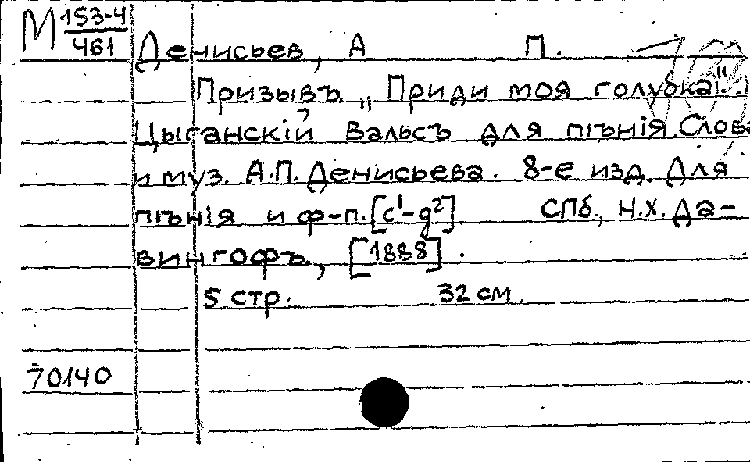 М 153-4
461
Денисьев, А П.
Призывъ „Приди моя голубка!..“
Цыганскiй вальсъ для пѣнiя. Слова
и муз. А.П. Денисьева. 8-е изд. Для
пѣнiя и ф-п. [c¹-g²] СПб., Н.Х. Да-
вингофъ, [1888].
5 стр. 32 см.
70140